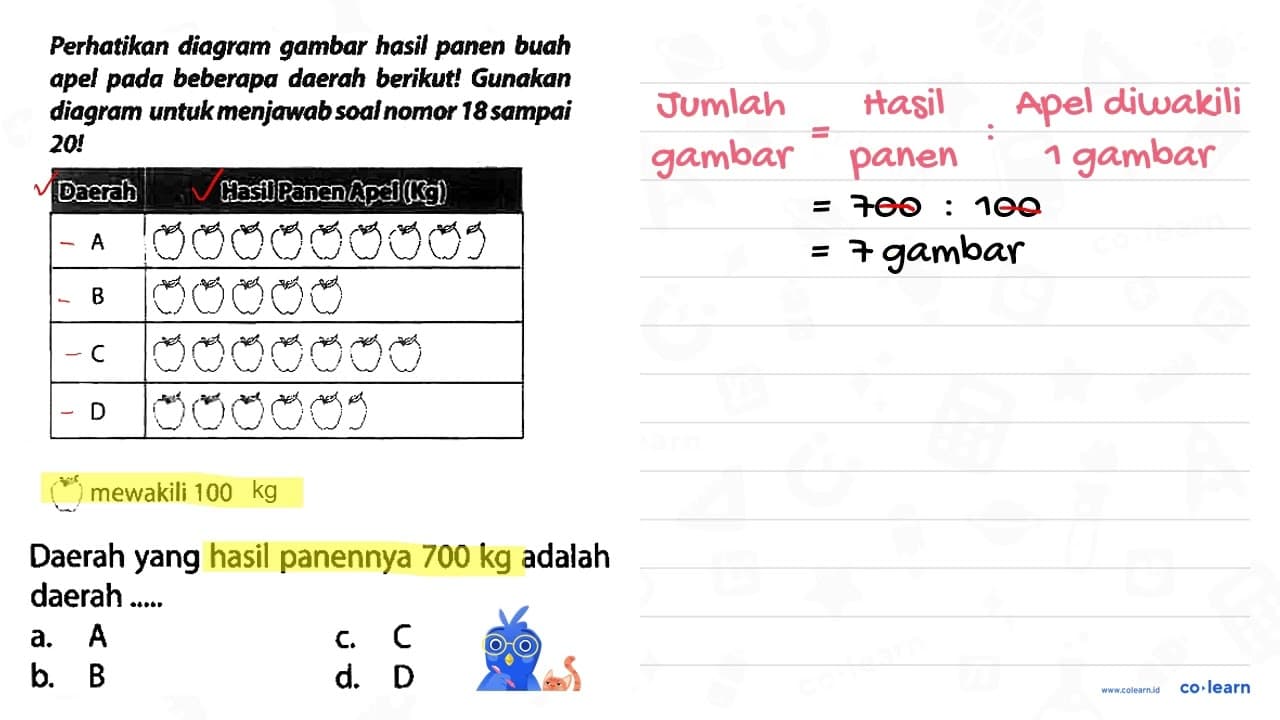 Perhatikan diagram gambar hasil panen buah
apel pada beberapa daerah berikut! Gunakan
diagram untuk menjawab soal nomor 18 sampai
20!
Daerah Hasil Panen Apel (Kg)
A
B
C
D
mewakili 100 kg
Daerah yang hasil panennya 700 kg adalah
daerah .....
a. A c. C
b. B d. D
Jumlah gambar = Hasil panen : Apel diwakili 1 gambar
= 700 : 100
= 7 gambar
www.colearn.id co·learn